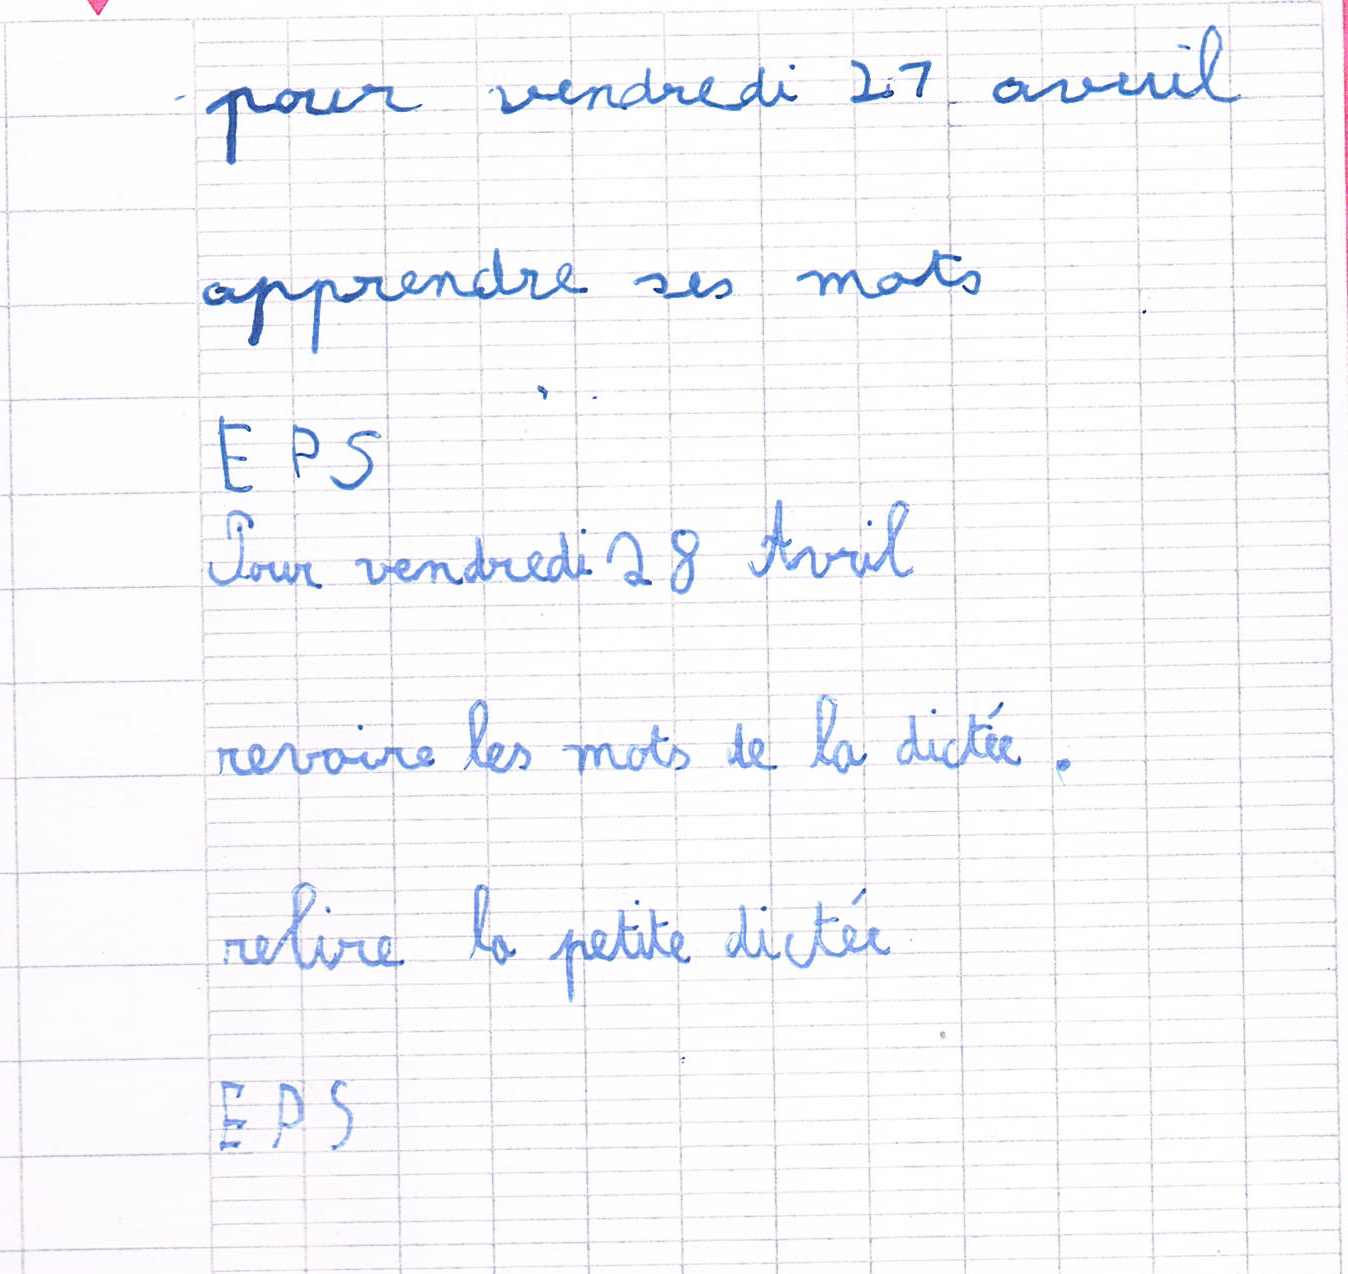 pour vendredi 27 avril
apprendre ses mots
EPS
Pour vendredi 28 Avril
revoire les mots de la dictée.
relire la petite dictée
EPS